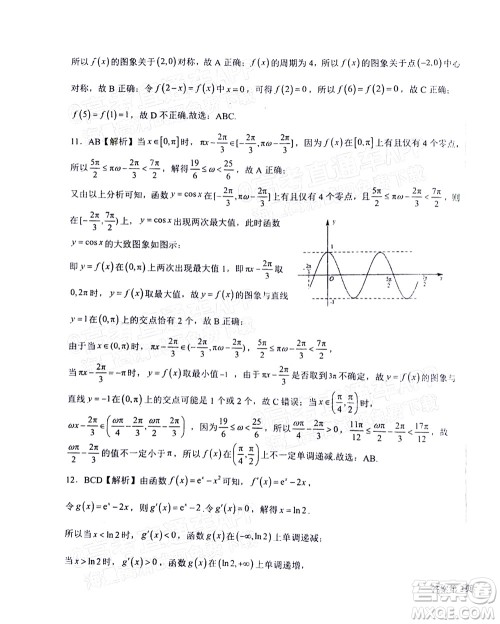 所以 f(x) 的图象关于 (2,0) 对称，故 A 正确；f(x) 的周期为 4，所以 f(x) 关于点 (-2,0) 中心
对称，故 B 正确；令 f(2-x)=f(x) 中 x=0，可得 f(2)=f(0)=0，所以 f(6)=f(2)=0，故 C 正确；
f(5)=f(1)=0，故 D 不正确.故选：ABC.
11．AB【解析】当 x∈[0,π] 时，πx-2π/3∈[-2π/3,πω-2π/3]，f(x) 在 [0,π] 上有且仅有 4 个零点，
所以 5π/2≤πω-2π/3<7π/2，所以 19/6≤ω<25/6，故 A 正确；
又由以上分析可知，函数 y=cosx 在 [-2π/3,πω-2π/3) 上有且仅有 4 个零点，且 5π/2≤πω-2π/3<7π/2，则
在[-2π/3,7π/2) 上，y=cosx 出现两次最大值，此时函数
y=cosx 的大致图象如图示：
即 y=f(x) 在 (0,π) 上两次出现最大值 1，此时 πx-2π/3取
0,2π 时，y=f(x) 取最大值，故 y=f(x) 的图象与直线
y=1 在 (0,π) 上的交点恰有 2 个，故 B 正确；
由于当 x∈(0,π) 时，πx-2π/3∈(-2π/3,πω-2π/3)，5π/2≤πω-2π/3<7π/2，
当 πx-2π/3=-π时，y=f(x) 取最小值-1，由于 πω-2π/3是否取到 不确定，故 y=f(x) 的图象与
直线 y=-1 在 (0,π) 上的交点可能是 1 个或 2 个，故 C 错误；当 x∈(π/4,π/2) 时，
ωx-2π/3∈(ωπ/4-2π/3,ωπ/2-2π/3)，因为 19/6≤ω<25/6，所以 ，故
ωπ/2-2π/3 的值不一定小于 π，所以 f(x) 在(π/4,π/2)上不一定单调递减.故选：AB.
12．BCD【解析】由函数 f(x)=eˣ-x² 可知，f'(x)=eˣ-2x，
令 g(x)=eˣ-2x，则 g'(x)=eˣ-2，
所以当 x<ln2 时，g'(x)<0，函数 g(x) 在 (-∞,ln2) 上单调递减；
当 x>ln2 时，g'(x)>0，函数 g(x) 在 (ln2,+∞) 上单调递增，